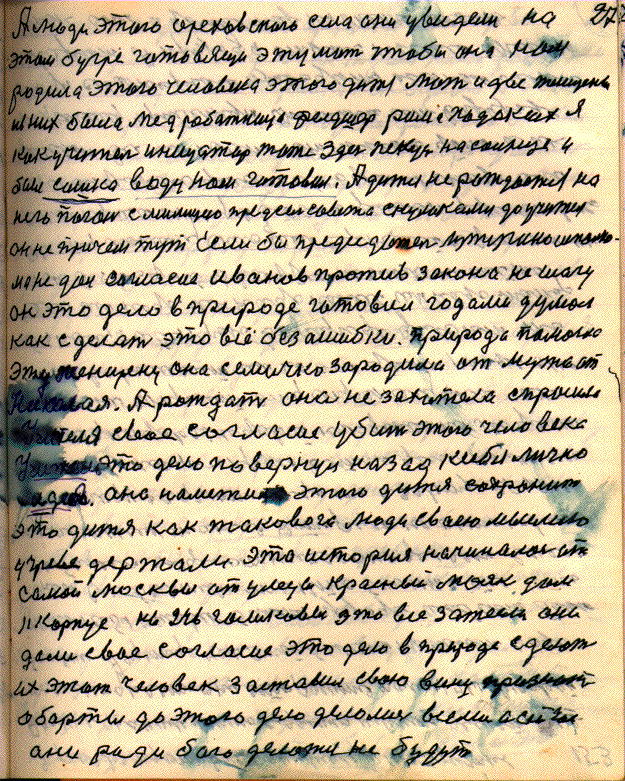 А люди этого ореховского села они увидели на 272
этом бугре готовящи эту мат чтоби она нам
родила этого человека этого дитя мат и две женщены
из них была мед работница рам Я
как учител тоже здес на солнце и
бил сошка воду нам готовил. А дитя не рождается на
него погон с милицию предсел совета с
он не причем тут если би председател
мане дал согласие Иванов против закона не шагу
он это дело в природе готовил годами думал
как сделат это всё без ашибки. природа помогла
эту женщену она семичко зародила от мужа от
Николая. А рождат она не захотела спросила
Учителя свое согласие убит этого человека
Учител это дело повернул назад к себи лично
она наметила этого дитя сохранит
это дитя как такового люди своею мыслию
держали эта история началас от
самой Москвы от улеци Красный маяк дом
11 корпус кв 246 голиковы это все затеели они
дали свое согласие это дело в природе сделат
их этот человек заставил свою вину признат
абарты до этого дело делолис всеми а сичас
они ради бога делатся не будут